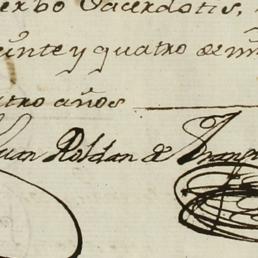 erbo Sacerdotis,
inte y quatro de mi
tro años
Juan Roldan de Arang